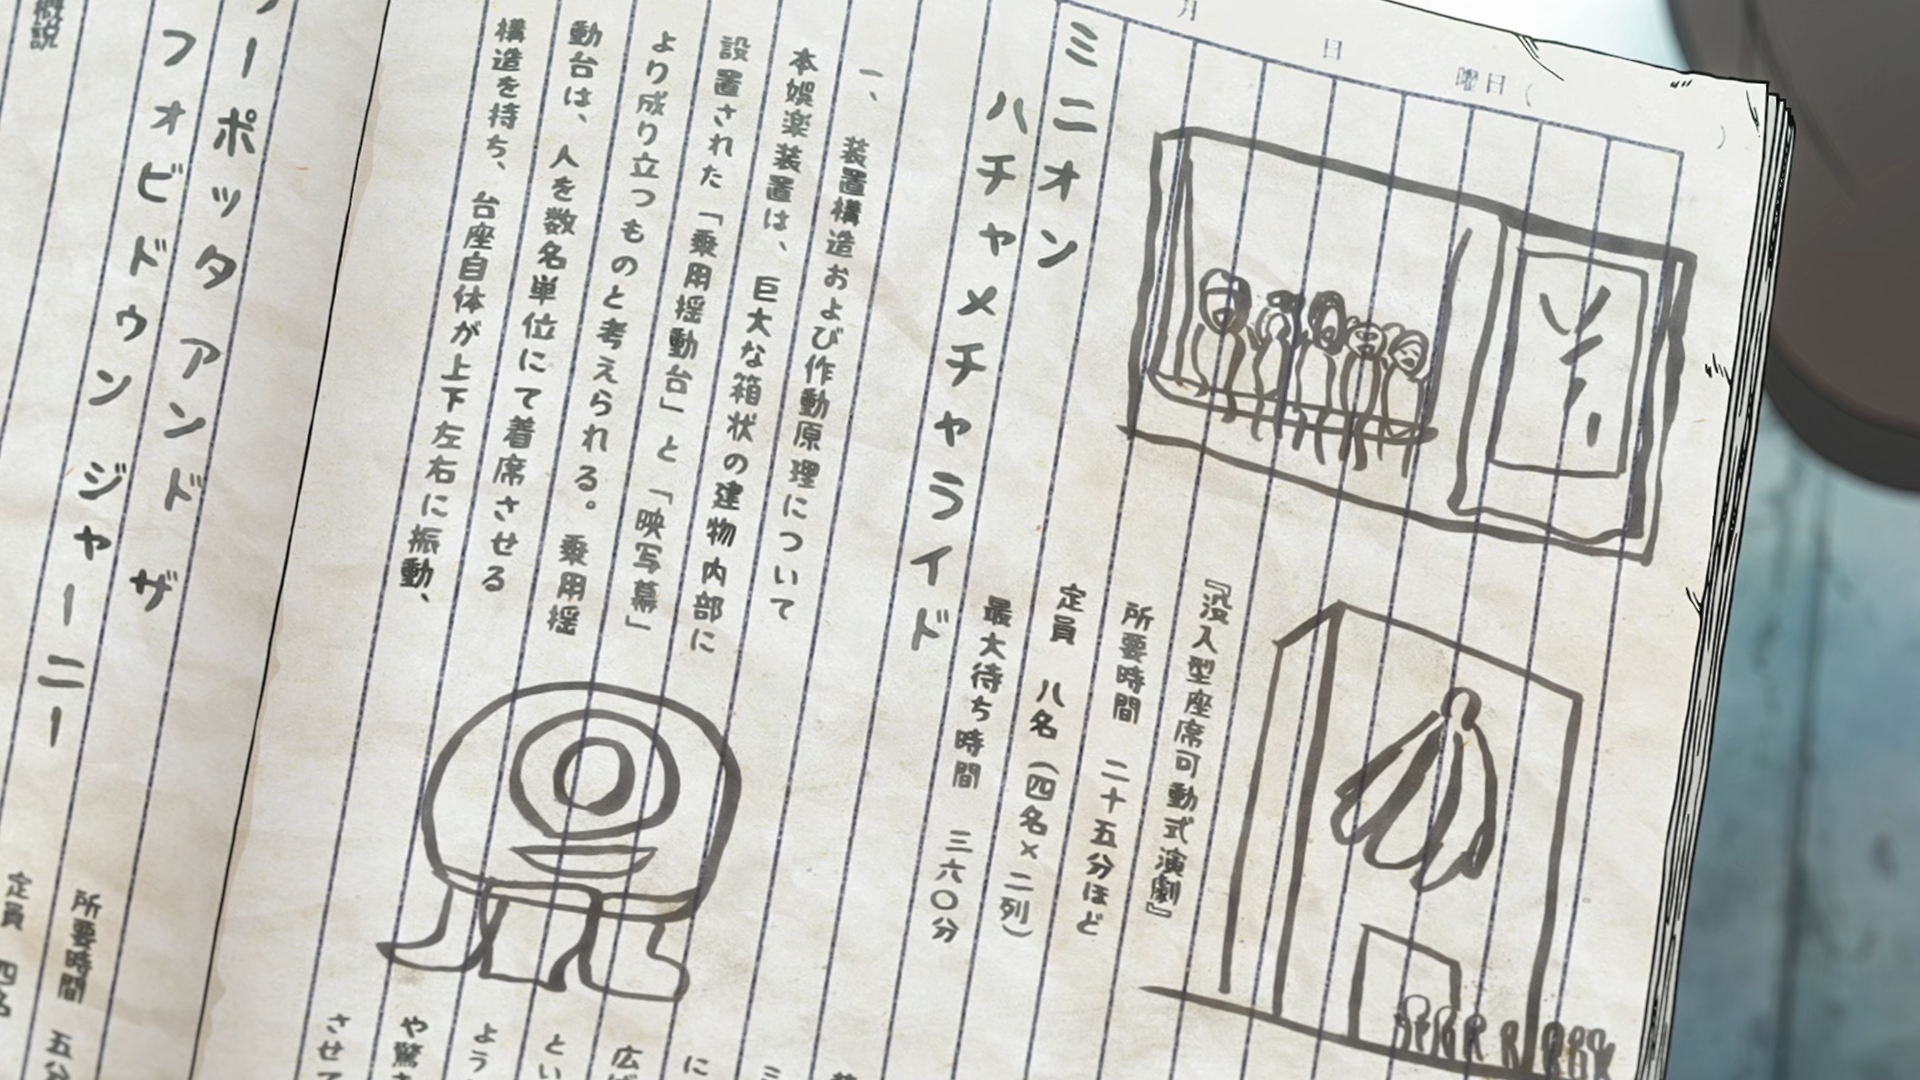 月 日 曜日 ( )
ミニオン
ハチャメチャライド
『没入型座席可動式演劇』
所要時間 二十五分ほど
定員 八名（四名×二列）
最大待ち時間 三六〇分
一、装置構造および作動原理について
本娯楽装置は、巨大な箱状の建物内部に
設置された「乗用揺動台」と「映写幕」
より成り立つものと考えられる。乗用揺
動台は、人を数名単位にて着席させる
構造を持ち、台座自体が上下左右に振動、
ミ
に
広
とい
よう
や驚き
させて
ーポッタ アンド ザ
フォビドゥン ジャーニー
所要時間 五分
定員 四名
概説